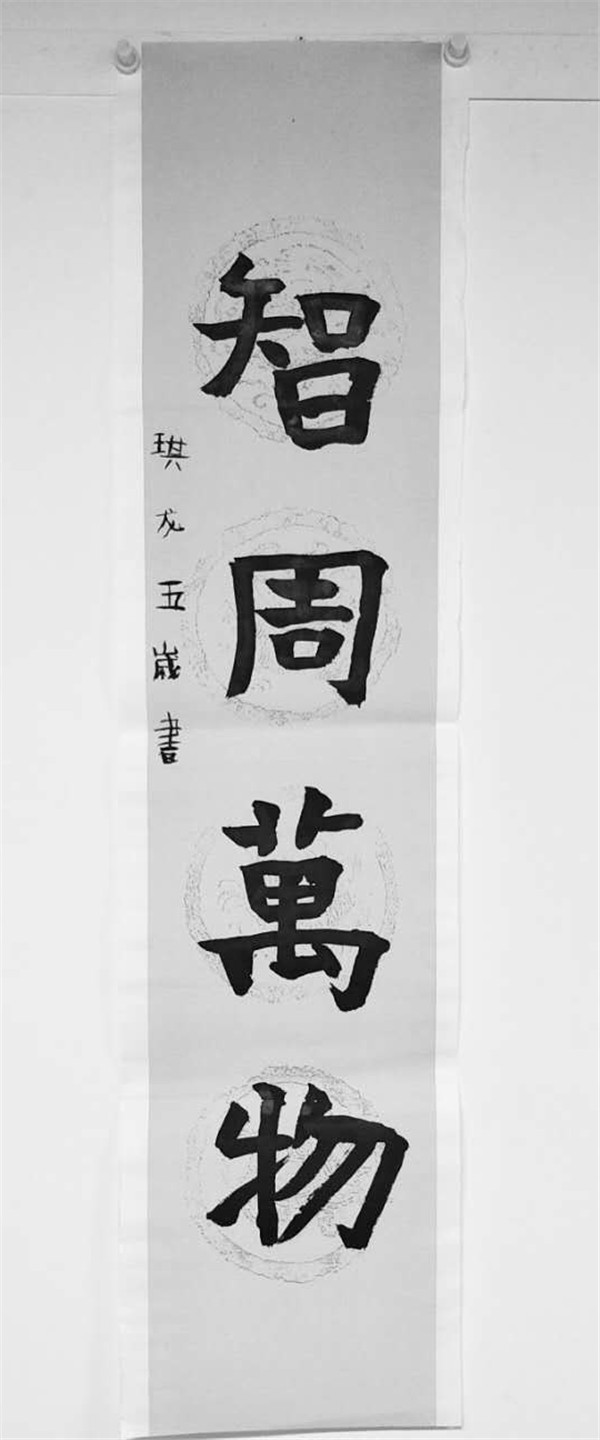 智周萬物
琪龙五歲書